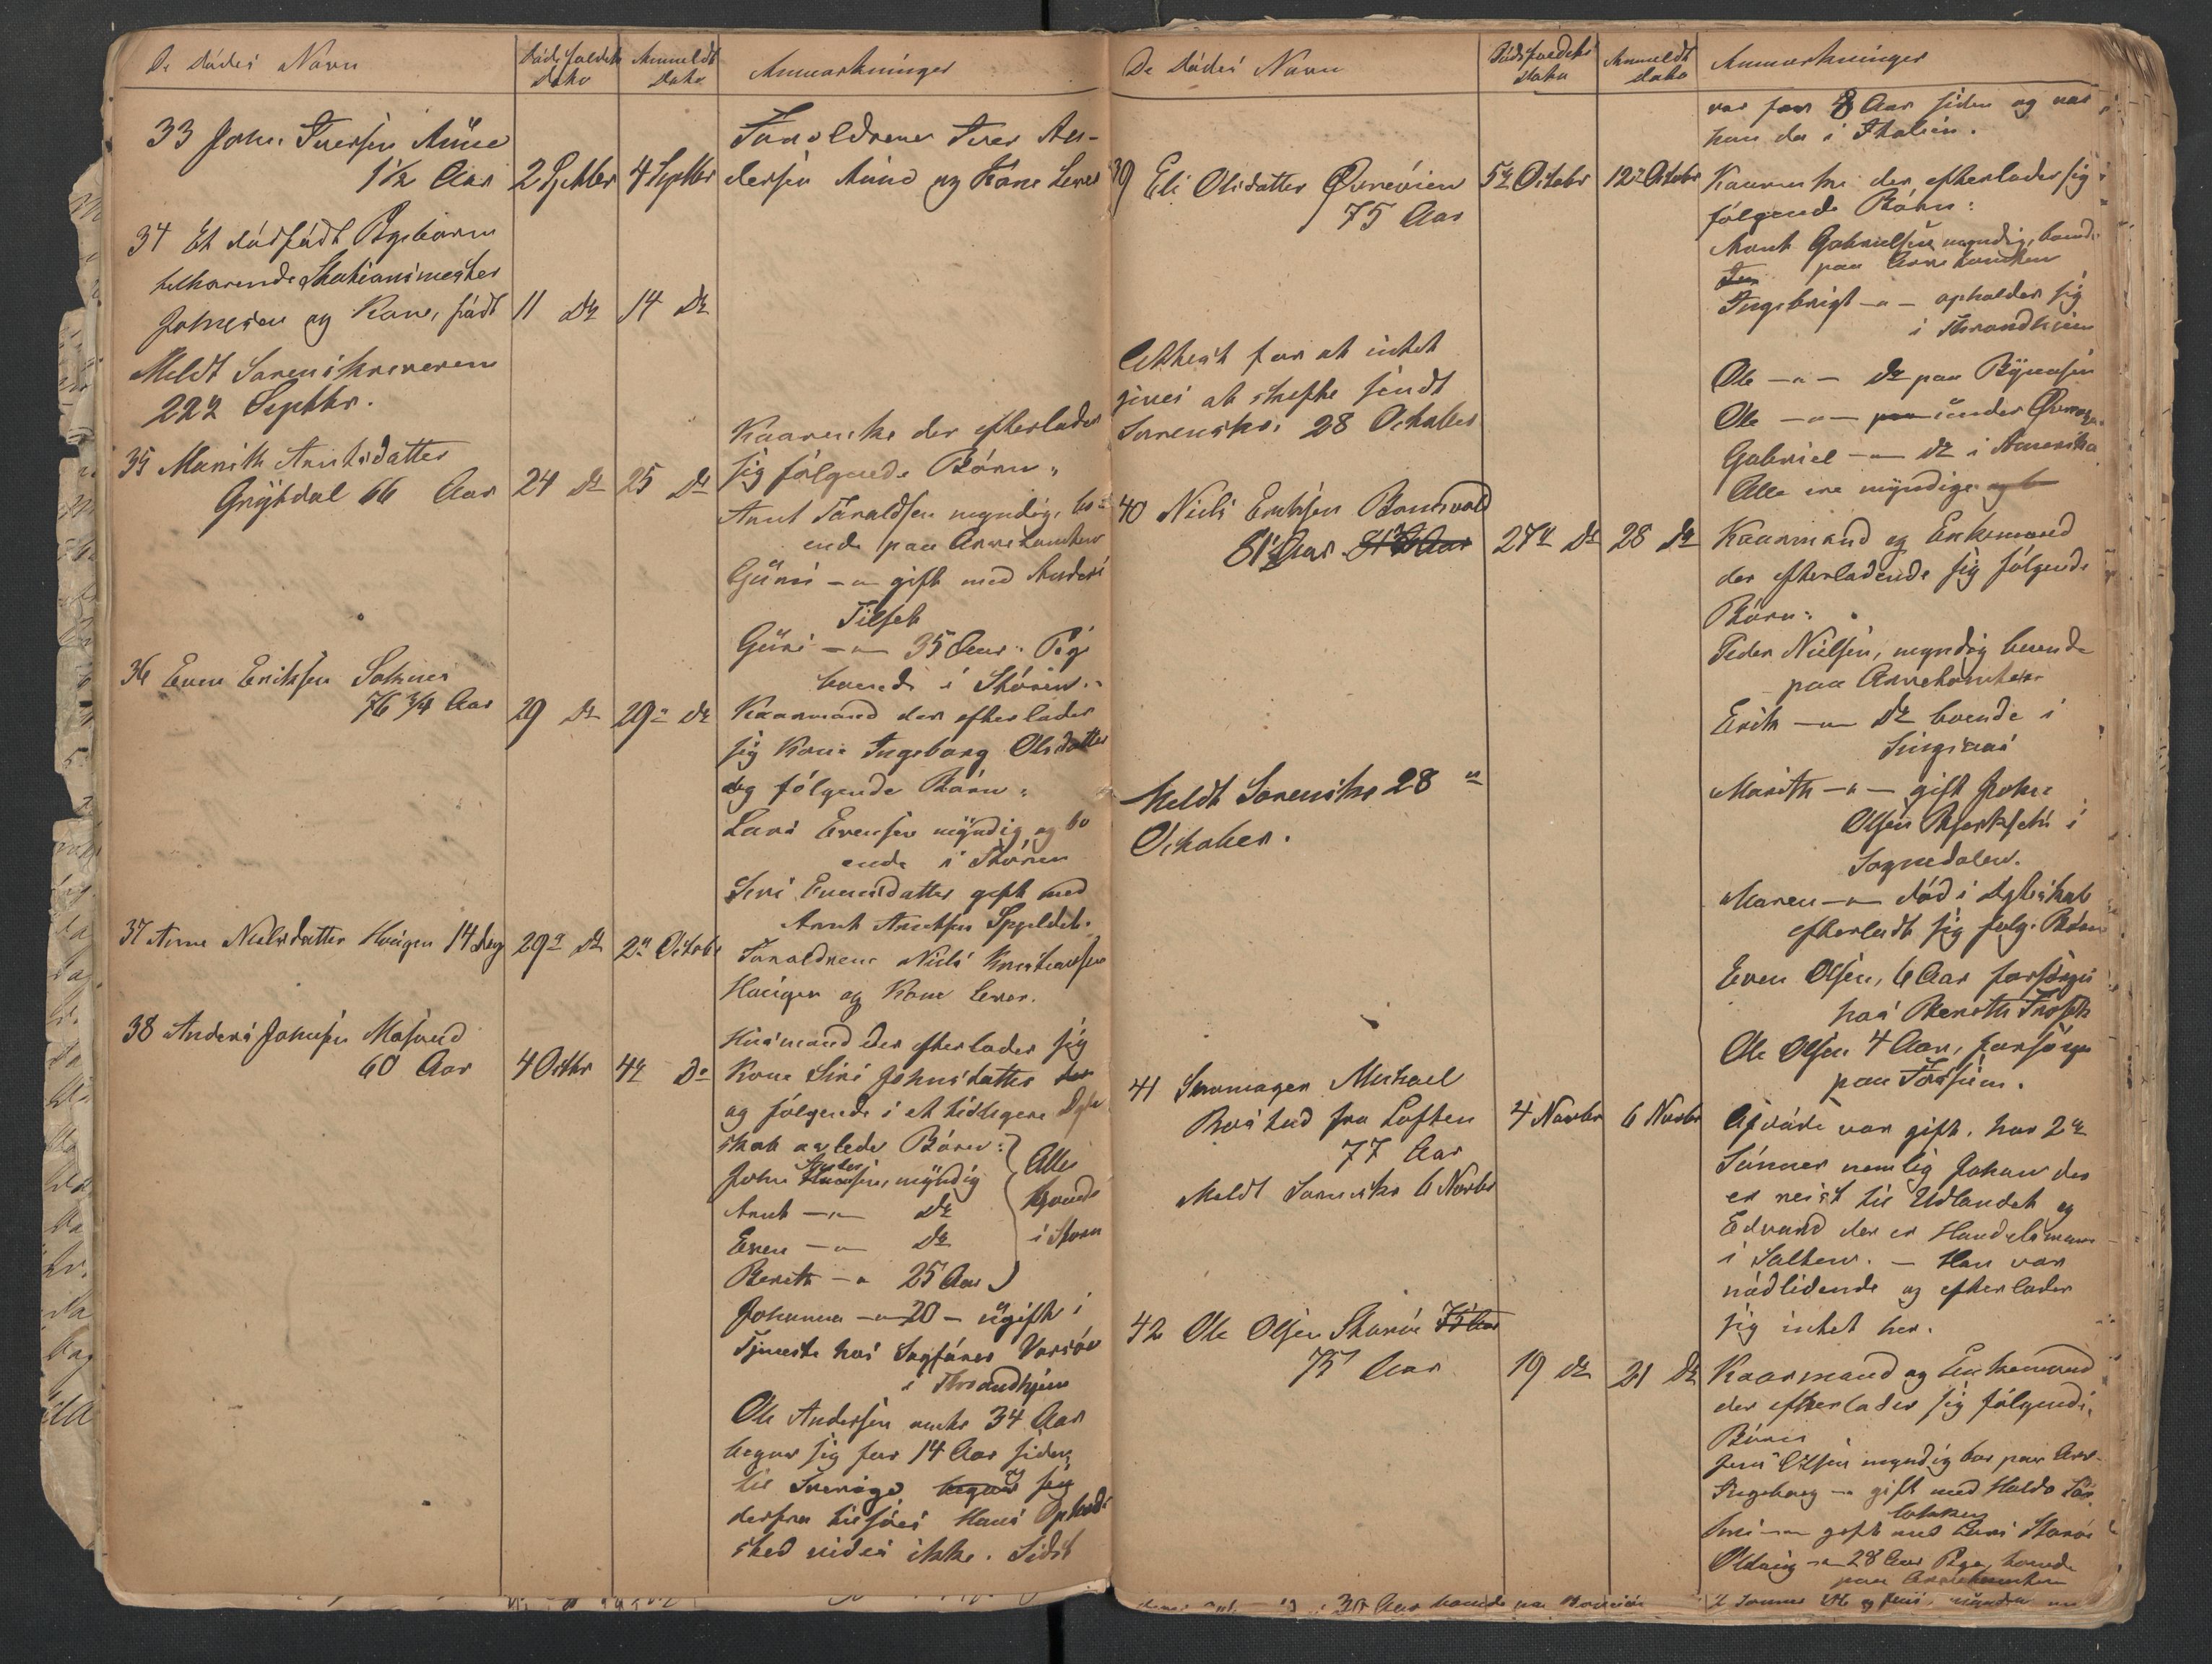 De Dødes Navn
Dødsfaldets Dato
Anmeldt Dato
Anmærkninger
33 John Iversen Aune
1½ Aar
2 Septbr
4 Septbr
Forældrene Iver An-
dersen Aune og Kone lever
34 Et dødfødt Pigebarn
tilhørende Stationsmester
Johnsen og Kone, født
11 Do
14 Do
Meldt Sorenskriveren
22 Septbr.
35 Marith Arntsdatter
Grytdal 66 Aar
24 Do
25 Do
Kaarenke der efterlader
sig følgende Børn:
Arnt Haraldsen myndig, bo-
ende paa Annekomten
Guru — " — gift med Anders
Tilset
Guri — " — 35 Aar. Pige
boende i Støren.
36 Even Eriksen Soknes
76 3/4 Aar
29 Do
29 Do
Kaarmand der efterlader
sig Kone Ingeborg Olsdatter
og følgende Børn:
Lars Evensen myndig og bo
ende i Støren
Siri Evensdatter gift med
Arnt Arntsen
37 Anne Nielsdatter Haugen 14 Dag
29 Do
2 Octobr
Forældrene Niels Kristiansen
Haugen og Kone lever.
38 Anders Johnsen Mosand
60 Aar
4 Octbr
4 Do
Husmand der efterlader sig
Kone Siri Johnsdatter
og følgende i et tidligere Ægte
skab avlede Børn:
John Andersen, myndig
Arnt — " — Do
Even — " — Do
Berith — " 25 Aar
Alle
boende
i Støren
Johanna — " 20 — ugift i
Tjeneste hos Sagfører
i Throndhjem
Ole Andersen 34 Aar
begav sig for 14 Aar siden
til Sverige og
derfra tilsjøs Hans Opholds
sted vides ikke. Sidst
De Dødes Navn
Dødsfaldets Dato
Anmeldt Dato
Anmærkninger
var for 8 Aar siden og var
han da i Italien.
39 Eli Olsdatter
75 Aar
5 Octobr
12 Octobr
Kaarenke der efterlader sig
følgende Børn:
Arnt Gabrielsen, myndig, boende
paa Annekomten
Ingebrigt — " — opholder sig
i Throndhjem
Ole — " — Do paa Bynesset
Ole — " — under
Gabriel — " — Do i Amerika
Alle ere myndige
Attest for at intet
gives at skifte sendt
Sorenskr. 28 October
40 Niels Eriksen
81½ Aar
27 Do
28 Do
Kaarmand og Enkemand
der efterladende sig følgende
Børn:
Peder Nielsen, myndig boende
paa Annekomten
Erik — " — Do boende i
Singsaas
Marith — " — gift John
Olsen i
Sognedalen.
Maren — " — død i Ægteskab
efterladt sig følg. Børn
Even Olsen, 6 Aar forsørges
hos Berith
Ole Olsen 4 Aar, forsørges
paa
Meldt Sorenskr 28
October.
41 Skomager Michael
fra Loften
77 Aar
4 Novbr
6 Novbr
Meldt Sorenskr 6 Novbr
Afdøde var gift, har 2
Sønner nemlig Johan der
er reist til Udlandet og
Edvard der er Handelsmand
i Salten. — Han var
nødlidende og efterlader
sig intet her.
42 Ole Olsen Storøe
75 Aar
19 Do
21 Do
Kaarmand og Enkemand
der efterlader sig følgende
Børn
Jens Olsen myndig bor paa
Ingeborg — " gift med
Siri — " — gift med Lars Storøe
28 Aar Pige, boende
paa Annekomten